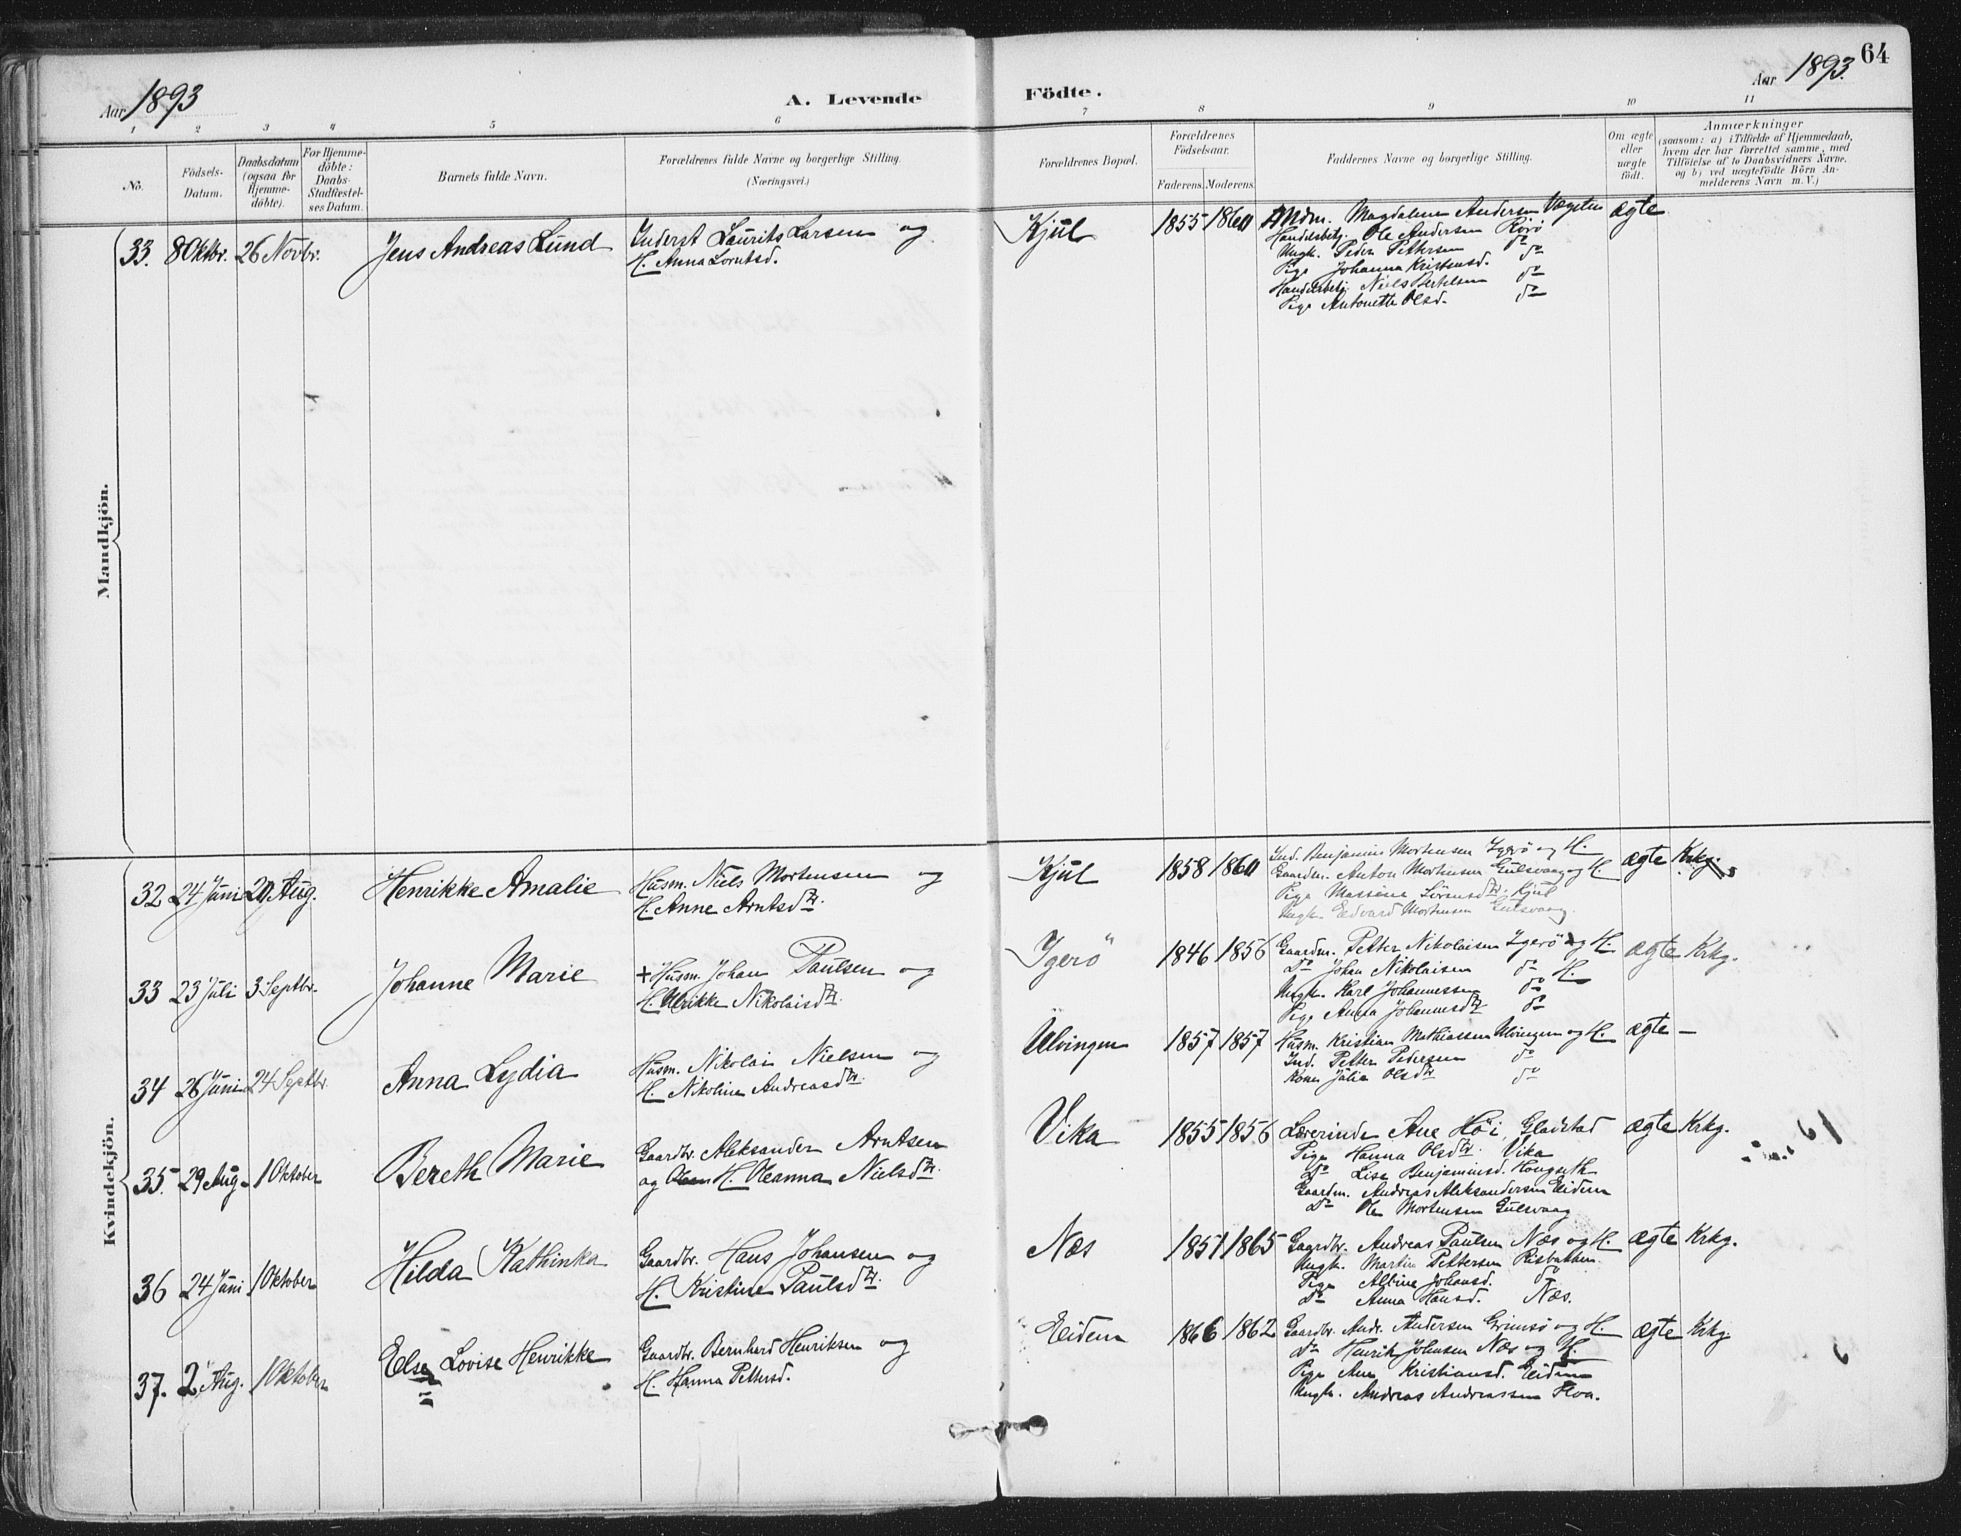 Aar 1893
A. Levende Födte.
Aar 1893. 64
1 2 3 4 5 6 7 8 9 10 11
No.
Födsels-Datum.
Daabsdatum (ogsaa for Hjemme-döbte).
For Hjemme-döbte: Daabs-Stadfestel-ses Datum.
Barnets fulde Navn.
Forældrenes fulde Navne og borgerlige Stilling. (Næringsvei.)
Forældrenes Bopæl.
Forældrenes Födselsaar.
Faderens. Moderens.
Faddernes Navne og borgerlige Stilling.
Om ægte eller uægte födt.
Anmærkninger
(saasom: a) i Tilfælde af Hjemmedaab, hvem der har forrettet samme, med Tilföielse af to Daabsvidners Navne, og b) ved uægtefödte Börn An-melderens Navn m. V.)
Mandkjön.
33. 8 Oktbr. 26 Novbr. Jens Andreas Lund
Inderst Laurits Larsen og
H. Anna Lorntsd.
Kjul 1855 1860
Mdm. Magdalene Andersen Vægsten
Handelsbetj. Ole Andersen Rörö
Ungk. Peder Pettersen do
Pige Johanna Kristensd. do
Handelsbetj. Niels Bertelsen do
Pige Antonette Olsd. do
ægte
Kvindekjön.
32 24 Juni 20 Aug. Henrikke Amalie
Husm. Niels Mortensen og
H. Anne Arntsdtr.
Kjul 1858 1860
Ind. Benjamin Mortensen Igerö og H.
Gaardm. Anton Mortensen Gulsvaag og H.
Pige Massena Sörensdtr. Kjul
Ungk. Edvard Mortensen Gulsvaag.
ægte Krkg.
33 23 Juli 3 Septbr. Johanne Marie
+ Husm. Johan Paulsen og
H. Ulrikke Nikolaisdtr.
Igerö 1846 1856
Gaardm. Petter Nikolaisen Igerö og H.
Do Johan Nikolaisen do H.
Ungk. Karl Johannessen do
Pige Anna Johannesdtr do
ægte Krkg.
34 26 Juni 24 Septbr. Anna Lydia
Husm. Nikolai Nielsen og
H. Nikoline Andreasdtr.
Ulvingen 1857 1857
Husm. Kristian Mathiassen Ulvingen og H.
Ind. Petter Pedersen do
Kone Julia Olsdtr do
ægte —
35. 29 Aug. 1 Oktober Bereth Marie
Gaardbr. Aleksander Arntsen
og H. Oleanna Nielsdtr.
Vika 1855 1856
Lærerinde Ane Höi, Gladstad
Pige Hanna Olsdtr. Vika
Do Lise Benjaminsd. Hongseth
Gaardm. Andreas Aleksandersen Eidem
Do Ole Mortensen Gulsvaag
ægte Krkg.
36 24 Juni 1 Oktober Hilda Kathinka
Gaardbr. Hans Johansen og
H. Kristine Paulsdtr.
Næs 1851 1865
Gaardbr. Andreas Paulsen Næs og H.
Ungk. Martin Pettersen Risbakken
Pige Albine Johansd. do
Do Anna Hansd. Næs.
ægte Krkg.
37. 2 Aug. 1 Oktober Else Lovise Henrikke
Gaardbr. Bernhard Henriksen og
H. Hanna Pettersd.
Eidem 1866 1862
Gaardbr. Andr. Andersen Grimsö og H.
Do Henrik Johansen Næs og H.
Pige Ane Kristiansd. Eidem
Ungk. Andreas Andreassen Floa.
ægte Krkg.